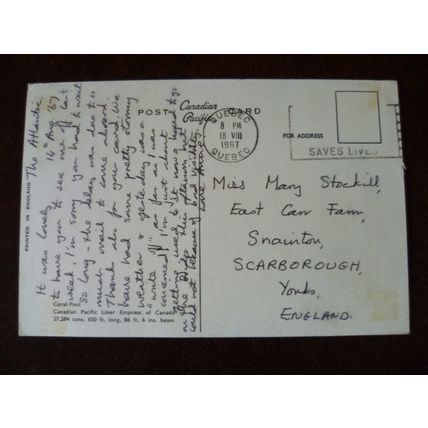 PRINTED IN ENGLAND
POST CARD
Canadian
Pacific
QUEBEC
8 PM
18 VIII
1967
QUEBEC
FOR ADDRESS
SAVES LIVES
The Atlantic
14th Aug '67
It was lovely
to have you to see me off last
week, I'm sorry you had to wait
so long - the delay was due to so
much mail to come aboard.
Thank also for your card. We
have had some pretty stormy
weather & yesterday was a
"write off" as far as I was
concerned! I'm just about
getting used to it now,
bad visibility.
Love Anne.
Miss Mary Stockill,
East Carr Farm,
Snainton,
SCARBOROUGH,
Yorks,
ENGLAND.
Coral Pool
Canadian Pacific Liner Empress of Canada
27,284 tons, 650 ft. long, 86 ft. 6 ins. beam